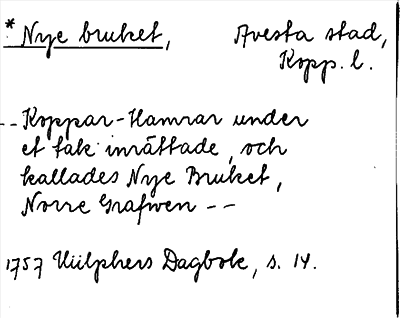 * Nye bruket, Avesta stad,
Kopp. l.
-- Koppar-Hamrar under
et tak inrättade, och
kallades Nye Bruket,
Norre Grafwen --
1757 Hülphers Dagbok, s. 14.